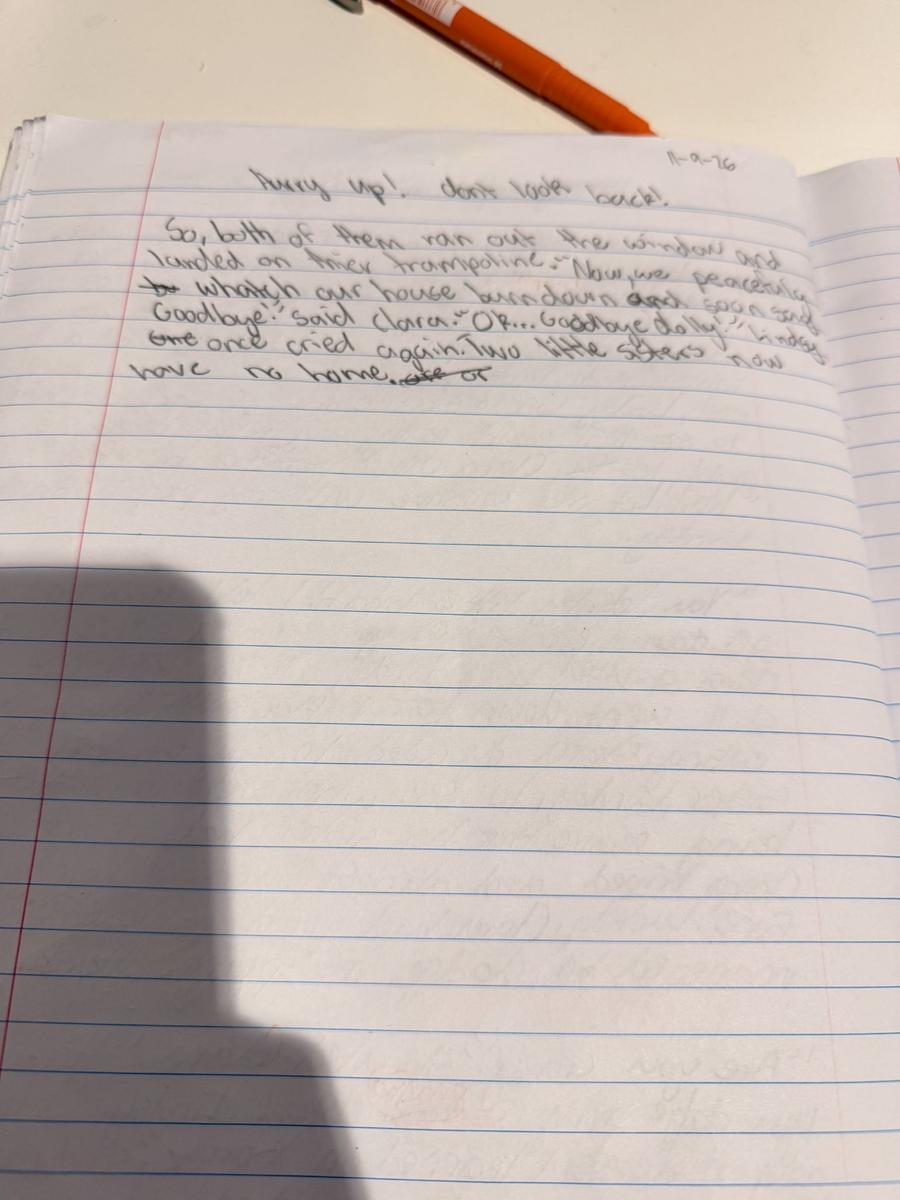 11-9-16
hurry up! don't look back!
So, both of them ran out the window and
landed on thier trampoline. "Now, we peacefully
whatch our house burndown and soon said
Goodbye." said Clara. "Ok... Goodbye dolly!" Lindsy
once cried again. Two little sisters now
have no home.